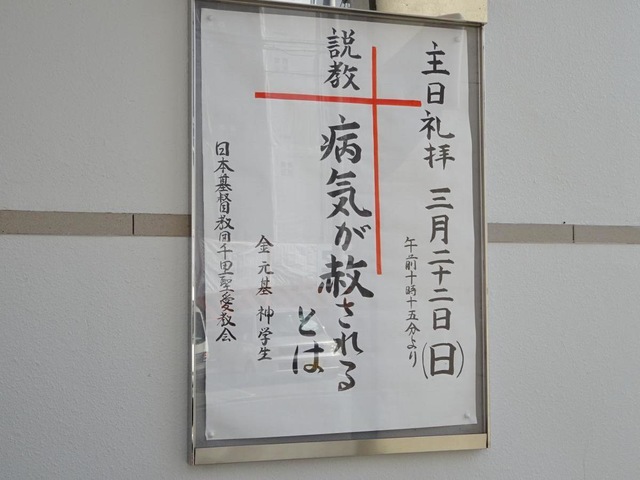 主日礼拝 三月二十二日(日)
午前十時十五分より
説教
病気が赦される
とは
金元基 神学生
日本基督教団千里聖愛教会